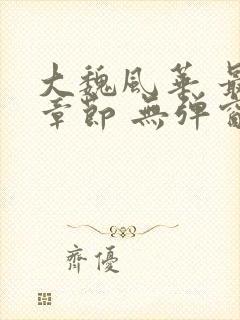 大魏風華 最
章節 無彈窗
齊優